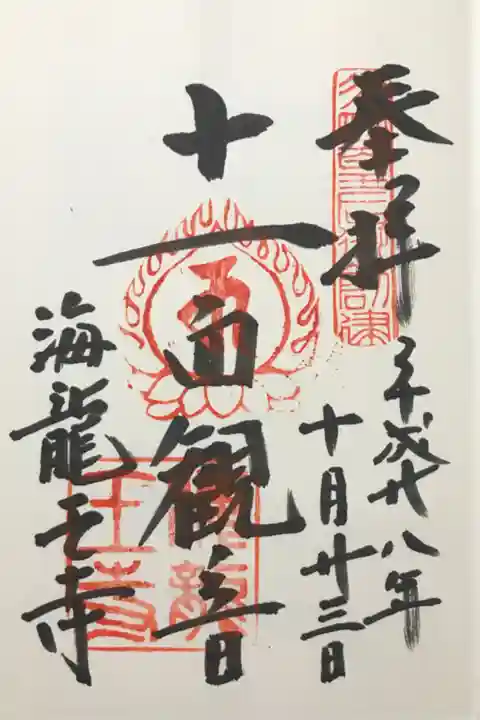 奉拝
平成廿八年
十月廿三日
十一面観音
海龍王寺